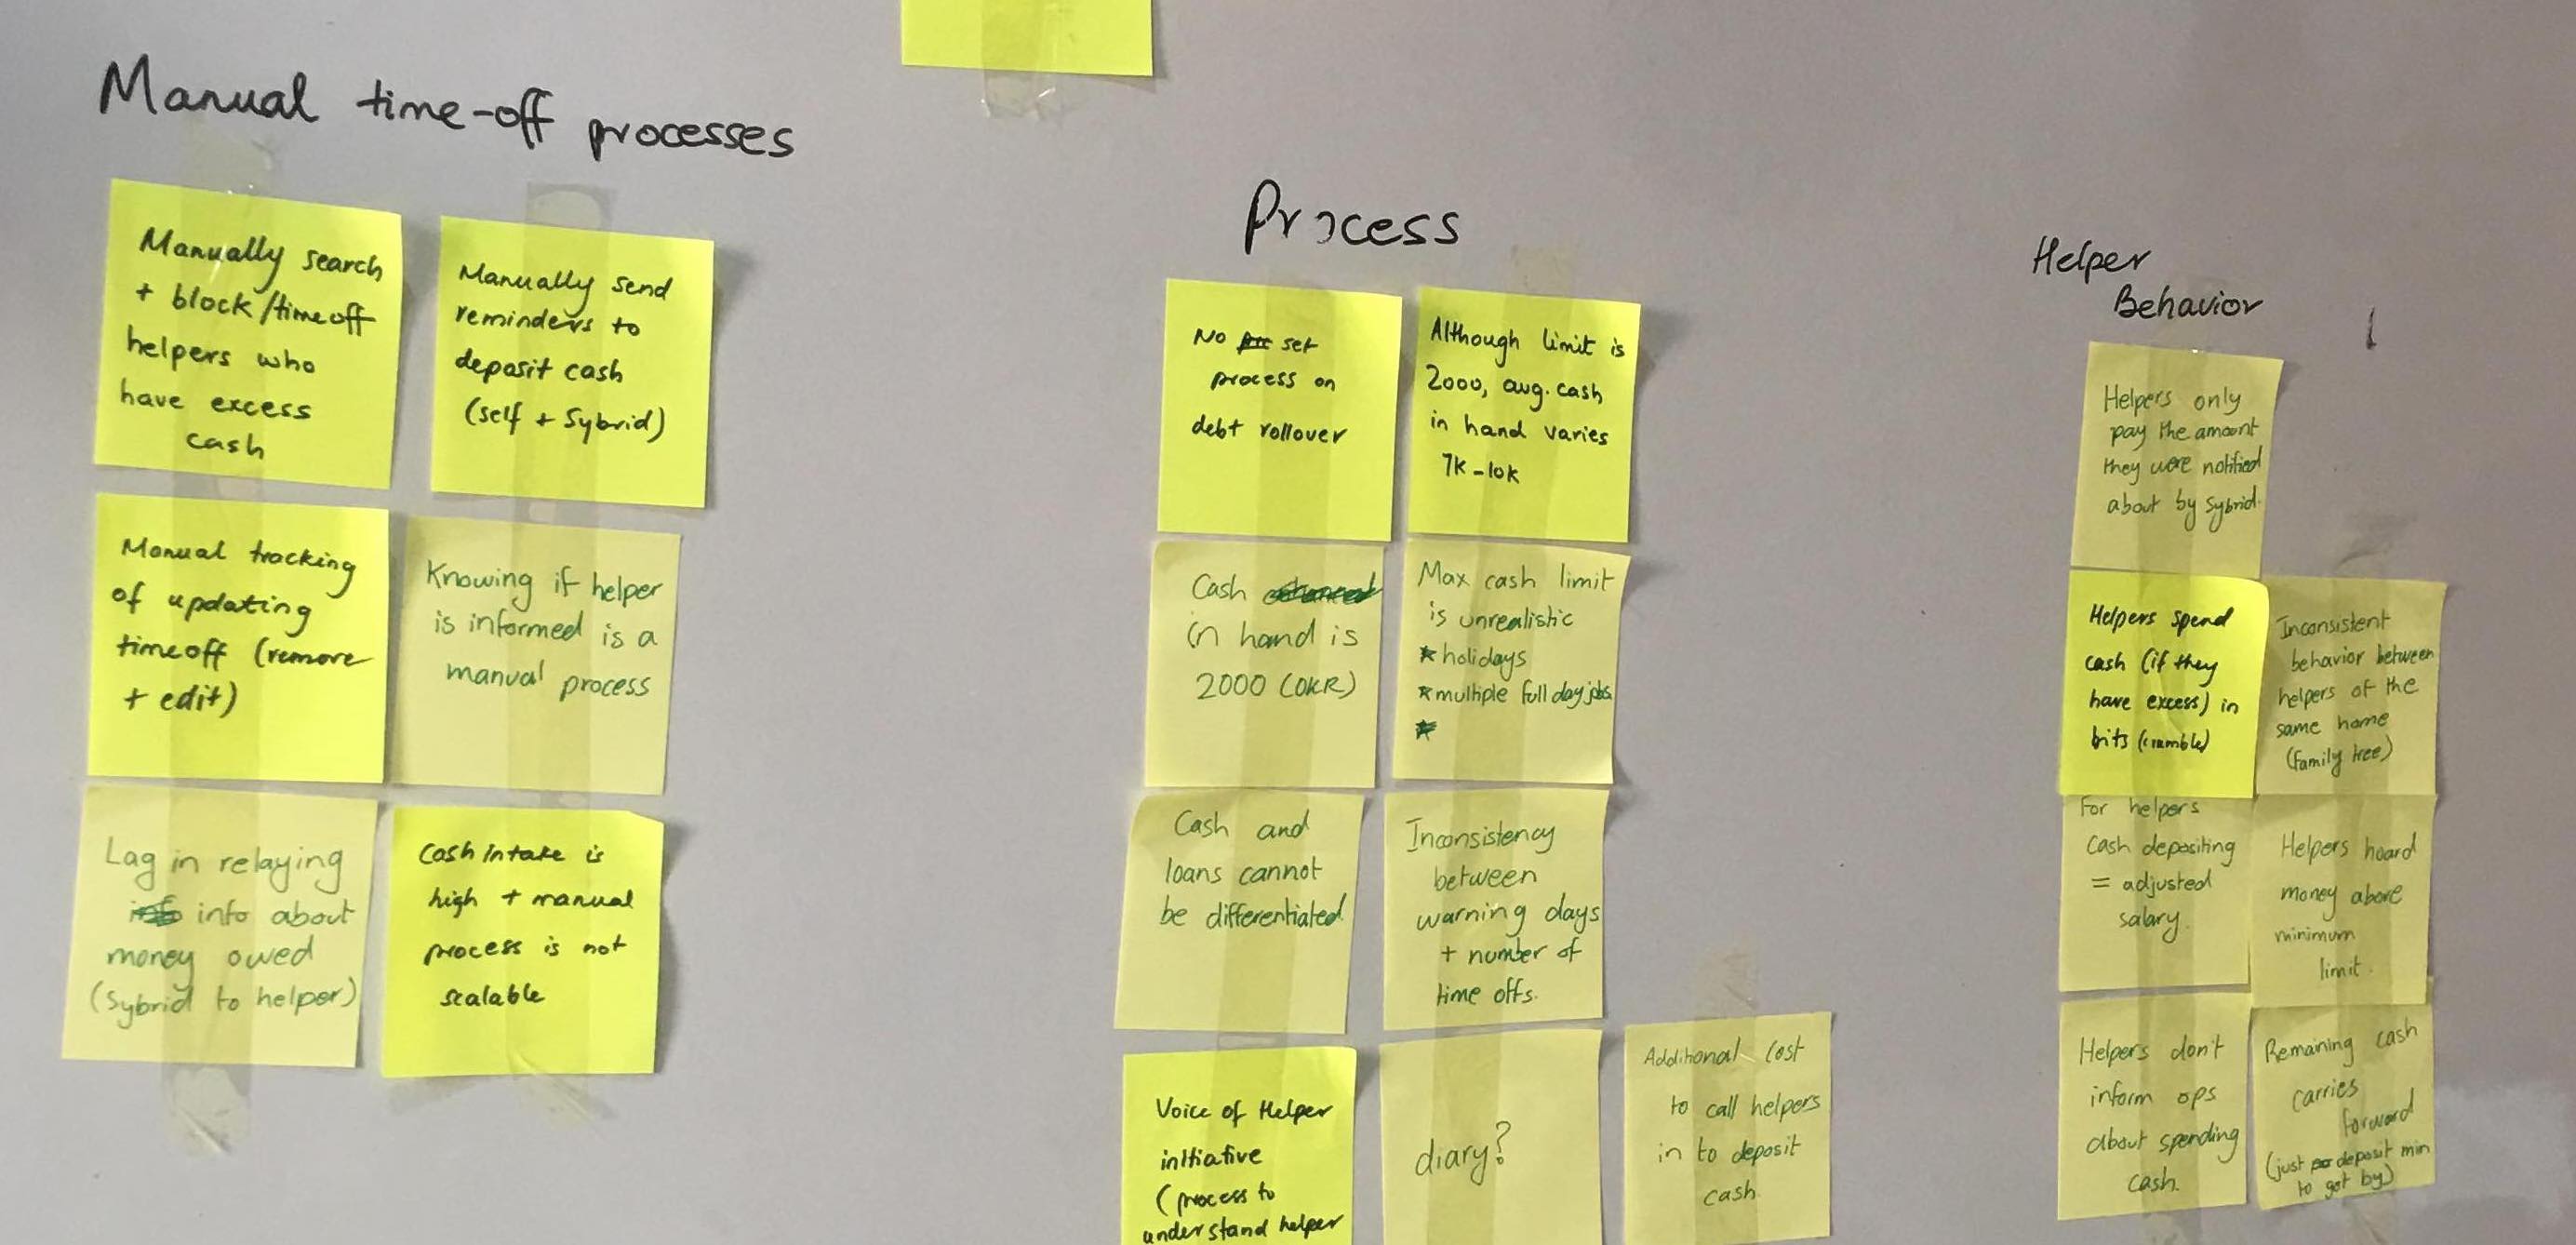 Manual time-off processes
Manually search
+ block/timeoff
helpers who
have excess
cash
Manually send
reminders to
deposit cash
(self + Sybrid)
Manual tracking
of updating
timeoff (remove
+ edit)
Knowing if helper
is informed is a
manual process
Lag in relaying
info about
money owed
(Sybrid to helper)
Cash intake is
high + manual
process is not
scalable
Process
No set
process on
debt rollover
Although limit is
2000, avg. cash
in hand varies
7k-10k
Cash
in hand is
2000 (OKR)
Max cash limit
is unrealistic
* holidays
* multiple full day jobs
*
Cash and
loans cannot
be differentiated
Inconsistency
between
warning days
+ number of
time offs.
Voice of Helper
initiative
(process to
understand helper
diary?
Additional cost
to call helpers
in to deposit
cash
Helper
Behavior
Helpers only
pay the amount
they were notified
about by Sybrid.
Helpers spend
cash (if they
have excess) in
bits (crumble)
Inconsistent
behavior between
helpers of the
same home
(family tree)
For helpers
Cash depositing
= adjusted
salary.
Helpers hoard
money above
minimum
limit.
Helpers don't
inform ops
about spending
cash.
Remaining cash
carries
forward
(just deposit min
to get by)